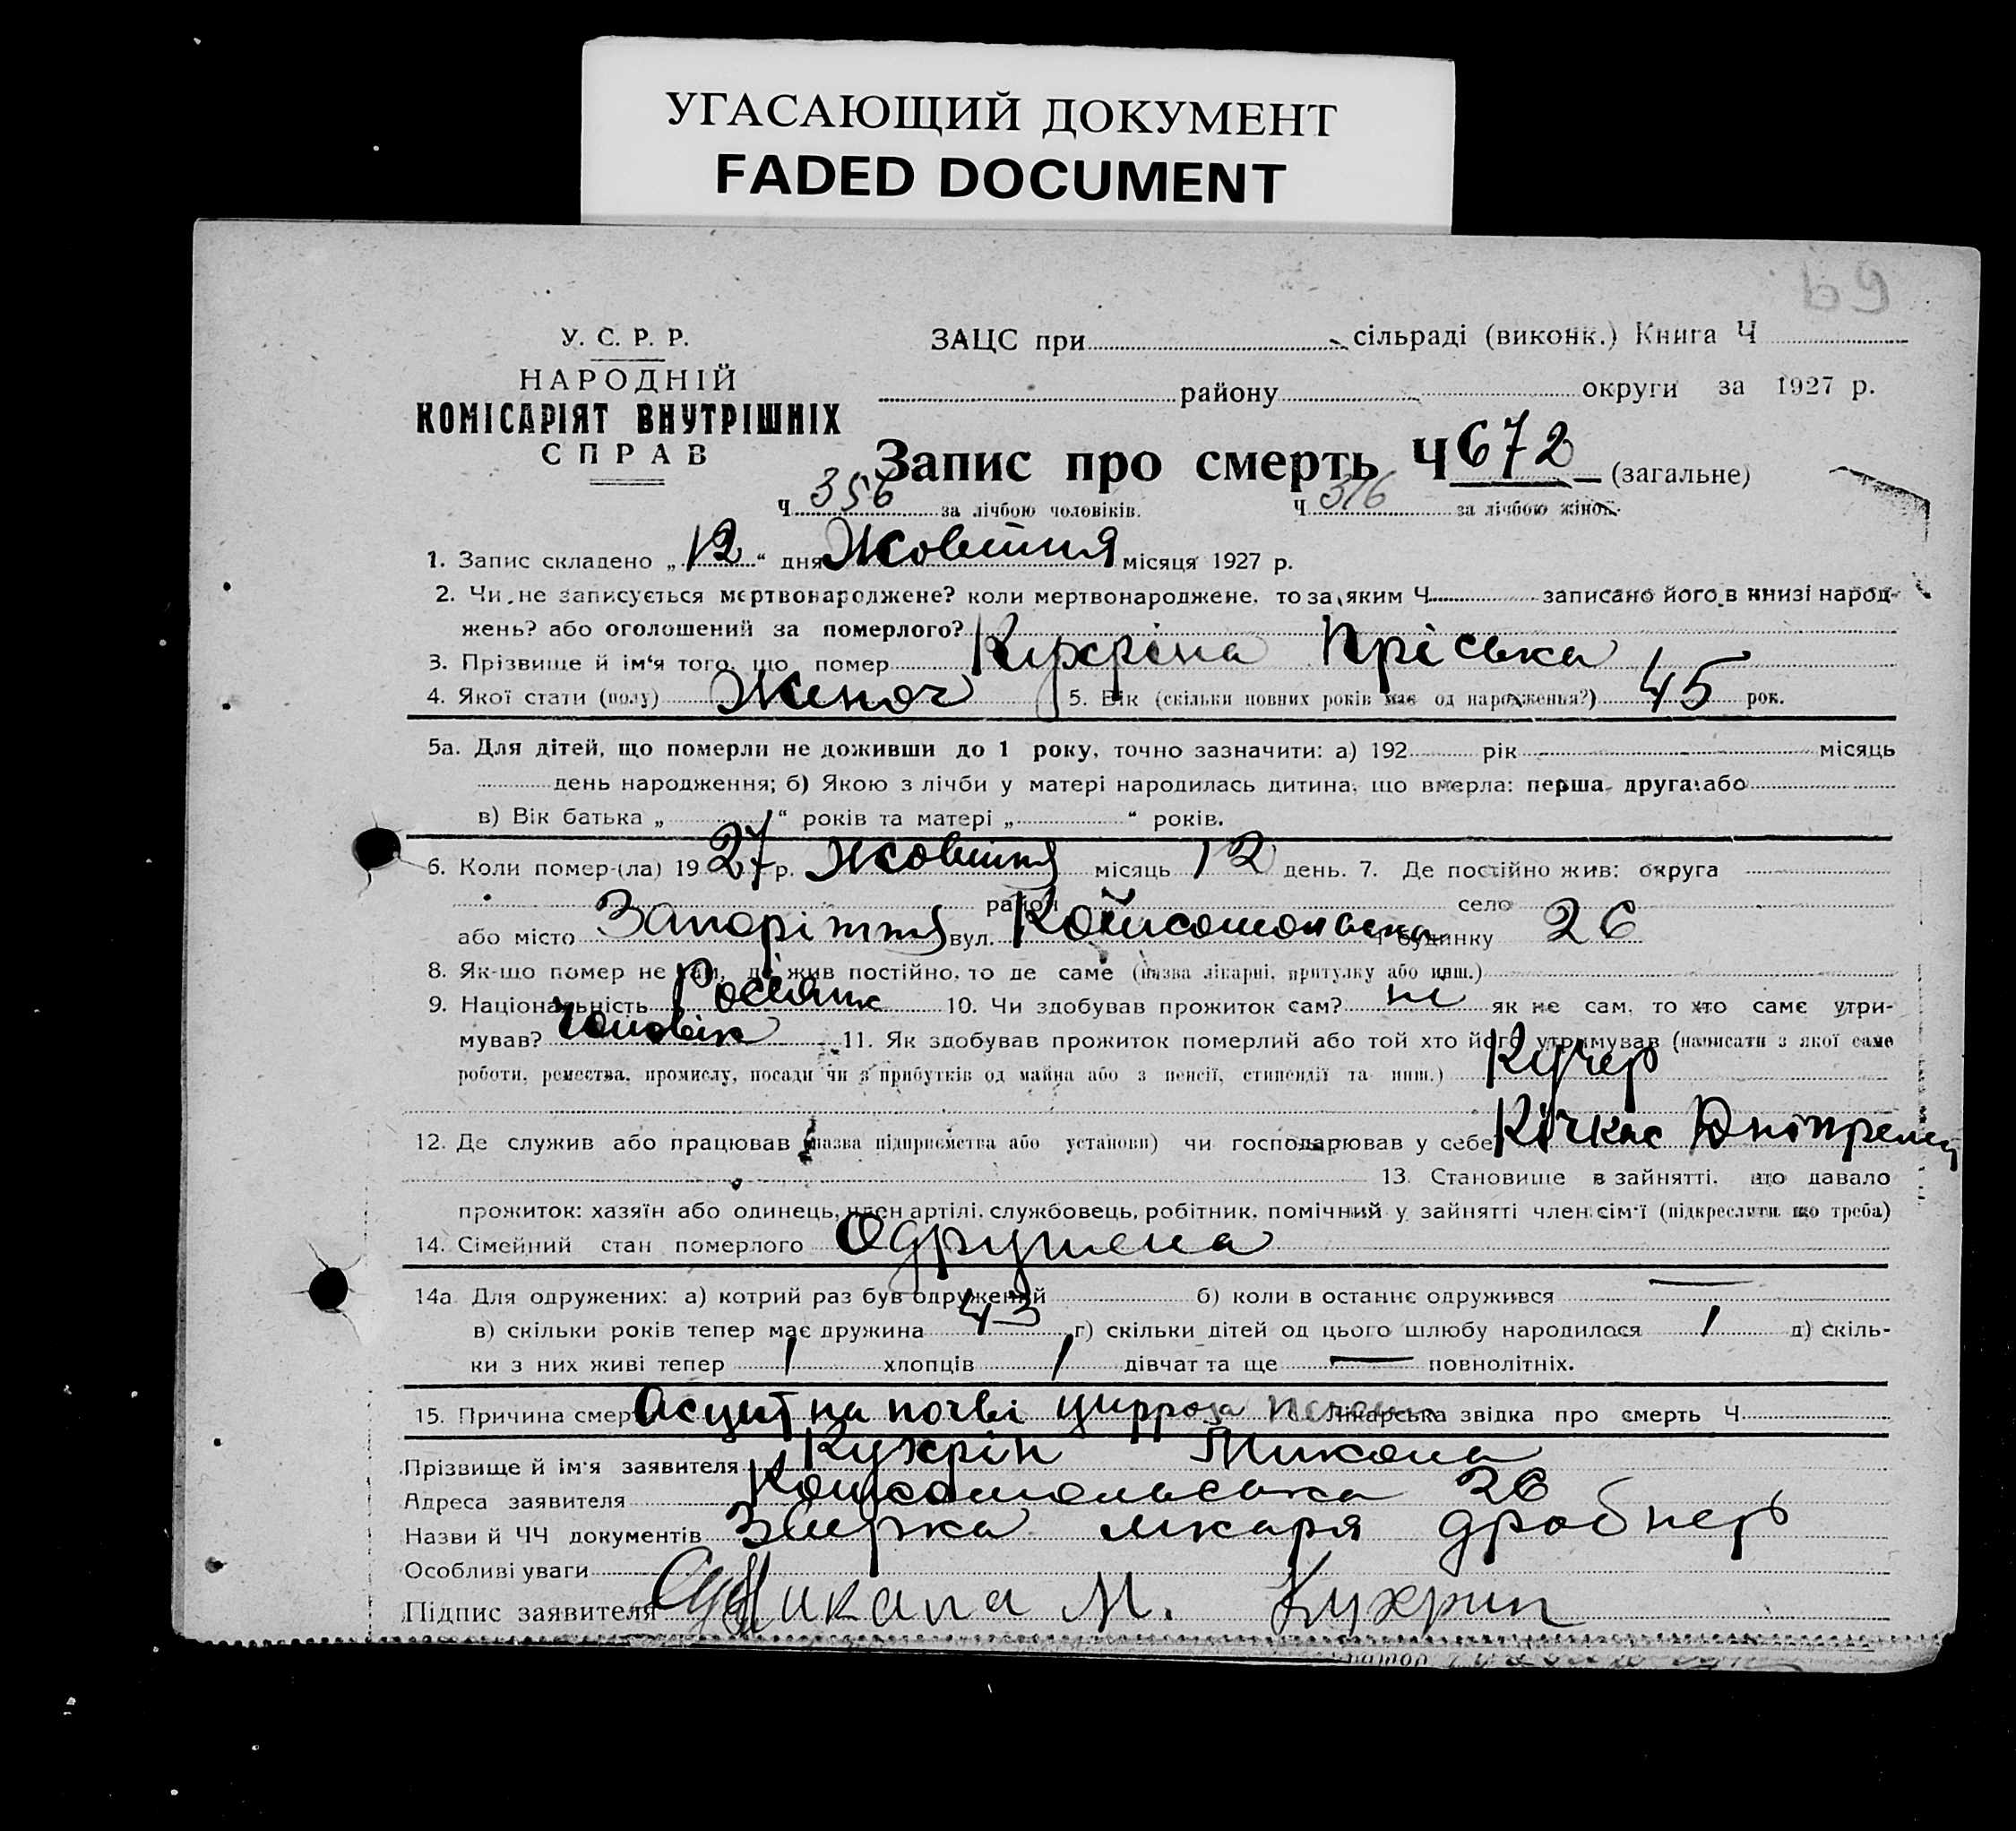 УГАСАЮЩИЙ ДОКУМЕНТ
FADED DOCUMENT
69
У. С. Р. Р.
НАРОДНІЙ
КОМІСАРІЯТ ВНУТРІШНІХ
СПРАВ
ЗАЦС при сільраді (виконк.) Книга Ч
району округи за 1927 р.
Запис про смерть Ч 672 (загальне)
Ч 356 за лічбою чоловіків. Ч 316 за лічбою жінок.
1. Запис складено „12“ дня Жовтня місяця 1927 р.
2. Чи не записується мертвонароджене? коли мертвонароджене, то за яким Ч записано його в книзі народ-
жень? або оголошений за померлого?
3. Прізвище й ім‘я того, що помер Кухріна Пріська
4. Якої стати (полу) Жиноч 5. Вік (скільки повних років має од народження?) 45 рок.
5а. Для дітей, що померли не доживши до 1 року, точно зазначити: а) 192 рік місяць
день народження; б) Якою з лічби у матері народилась дитина, що вмерла: перша, друга або
в) Вік батька „ “ років та матері „ “ років.
6. Коли помер-(ла) 1927 р. Жовтня місяць 12 день. 7. Де постійно жив: округа
район село
або місто Запоріжжя вул. Комсомольська № будинку 26
8. Як-що помер не там, де жив постійно, то де саме (назва лікарні, притулку або инш.)
9. Національність 10. Чи здобував прожиток сам? ні як не сам, то хто саме утри-
мував? чоловік 11. Як здобував прожиток померлий або той хто його утримував (написати з якої саме
роботи, ремества, промислу, посади чи з прибутків од майна або з пенсії, стипендії та инш.) Кучер
12. Де служив або працював (назва підприємства або установи) чи господарював у себе Кічкас
13. Становище в зайнятті, що давало
прожиток: хазяїн або одинець, член артілі, службовець, робітник, помічний у зайнятті член сім‘ї (підкреслити що треба)
14. Сімейний стан померлого Одружена
14а. Для одружених: а) котрий раз був одружений б) коли в останнє одружився —
в) скільки років тепер має дружина 43 г) скільки дітей од цього шлюбу народилося 1 д) скіль-
ки з них живі тепер 1 хлопців 1 дівчат та ще — повнолітніх.
15. Причина смерті Асцит на почві цирроза Лікарська звідка про смерть Ч
Прізвище й ім‘я заявителя Кухрін Микола
Адреса заявителя Комсомольська 26
Назви й ЧЧ документів лікаря
Особливі уваги
Підпис заявителя Микала М. Кухрин